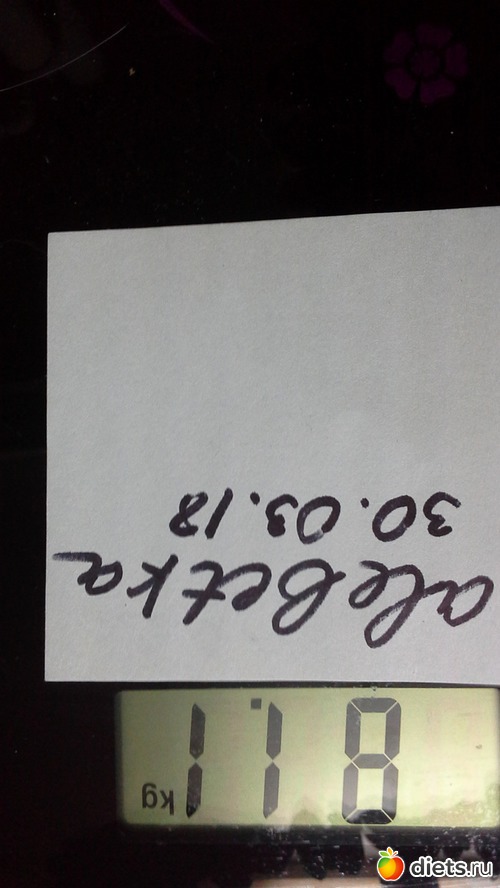 aleBetka
30.03.18
81.1 kg
diets.ru